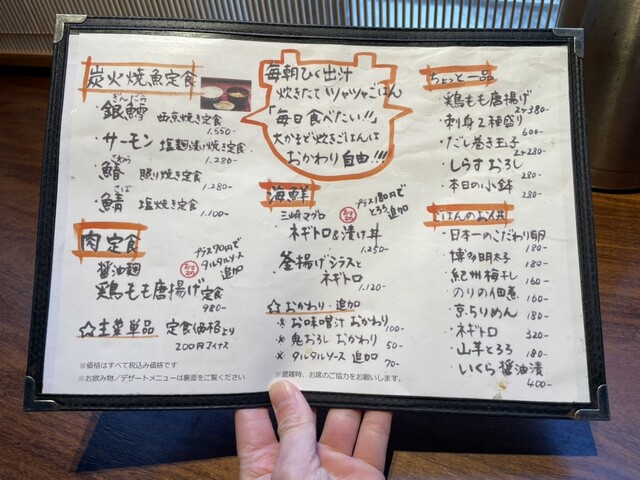 炭火焼魚定食
ぎんだら
・銀鱈 西京焼き定食
1.550-
・サーモン 塩麹漬け焼き定食
1.280-
さわら
・鰆 照り焼き定食
1.280-
さば
・鯖 塩焼き定食
1.100-
肉定食
プラス70円で
タルタルソース
追加
醤油麹
鶏もも唐揚げ定食
980-
☆主菜単品 定食価格より
200円マイナス
※価格はすべて税込み価格です
※お飲み物/デザートメニューは裏面をご覧ください
毎朝ひく出汁
炊きたてツヤツヤごはん
「毎日食べたい!!」
大かまど炊きごはんは
おかわり自由!!!
海鮮
プラス180円で
とろろ追加
三崎マグロ
ネギトロ&漬け丼
1.250-
釜揚げシラスと
ネギトロ
1.120-
☆おかわり・追加
※お味噌汁おかわり
100-
※鬼おろしおかわり
50-
※タルタルソース 追加
70-
※混雑時、お席のご協力をお願いします。
ちょっと一品
・鶏もも唐揚げ
2ヶ380-
・刺身2種盛り
600-
・だし巻き玉子
2ヶ280-
・しらすおろし
280-
・本日の小鉢
280-
ごはんのお供
・日本一のこだわり卵
180-
・博多明太子
180-
・紀州梅干し
160-
・のりの佃煮
160-
・京ちりめん
180-
・ネギトロ
320-
・山芋とろろ
180-
・いくら醤油漬
400-